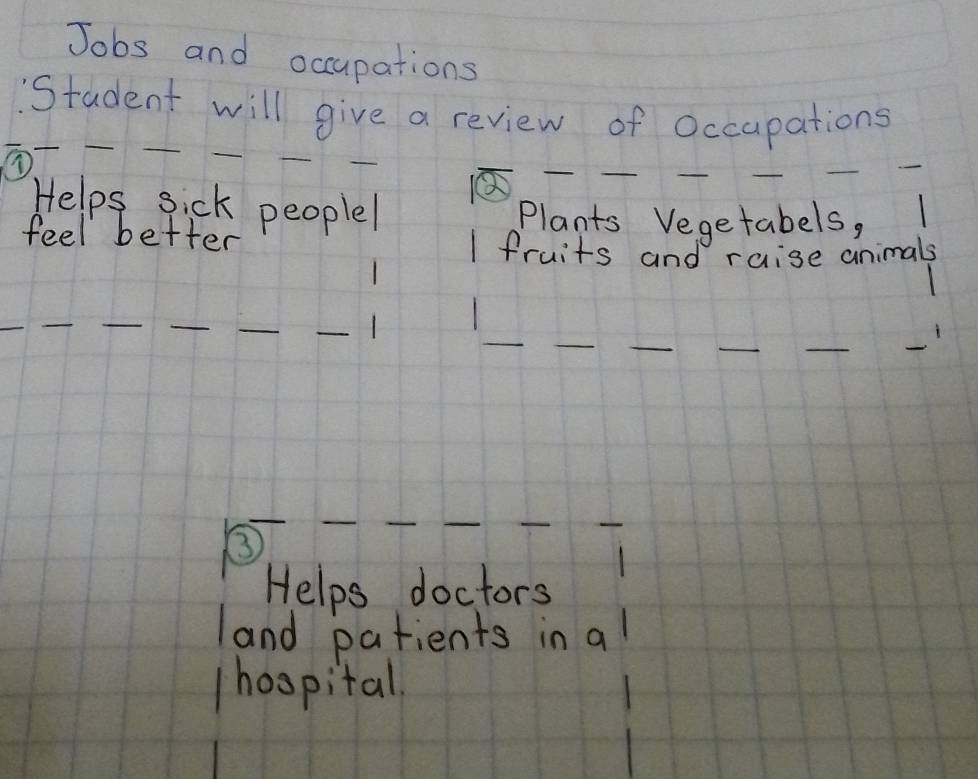 Jobs and occupations
Student will give a review of Occupations
①
Helps sick people
feel better
②
Plants Vegetabels,
fruits and raise animals
③
Helps doctors
and patients in a
hospital.